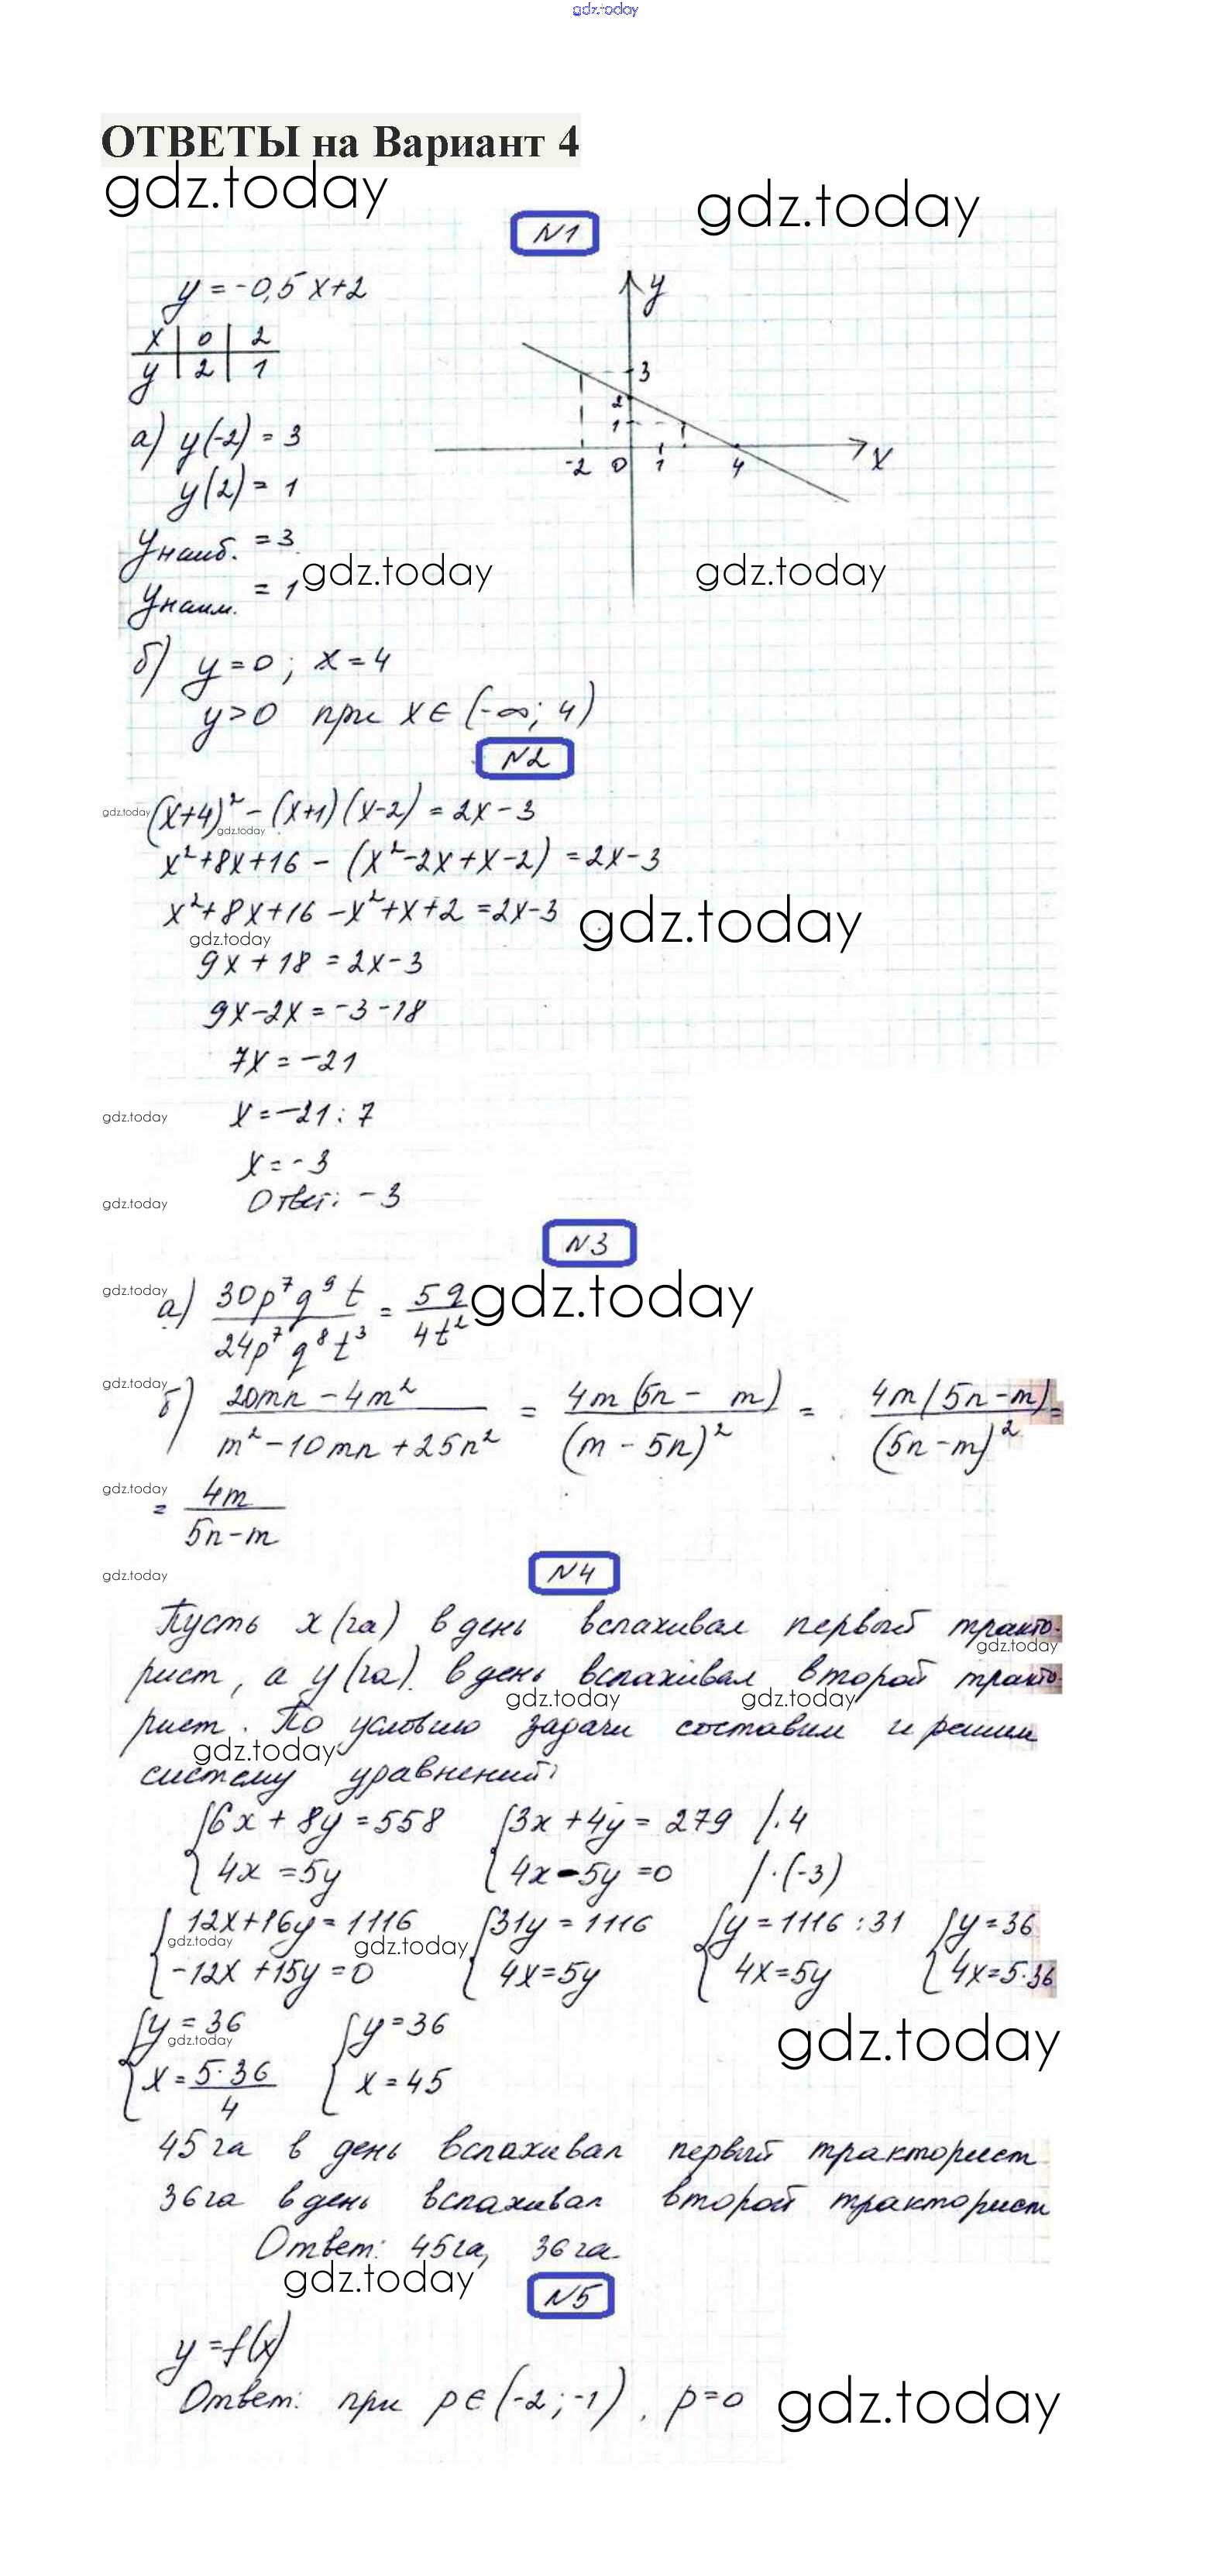 gdz.today
ОТВЕТЫ на Вариант 4
gdz.today gdz.today
N1
y = -0,5x+2
x | 0 | 2
y | 2 | 1
y
3
2
1
-2 0 1 4 x
а) y(-2) = 3
y(2) = 1
yнаиб. = 3
gdz.today gdz.today
yнаим. = 1
б) y=0; x=4
y>0 при x∈(-∞; 4)
N2
gdz.today (x+4)² - (x+1)(x-2) = 2x-3
gdz.today
x²+8x+16 - (x²-2x+x-2) = 2x-3
x²+8x+16-x²+x+2=2x-3 gdz.today
gdz.today
9x+18 = 2x-3
9x-2x = -3-18
7x = -21
gdz.today x=-21:7
x=-3
gdz.today Ответ: -3
N3
gdz.today а) 30p⁷q⁹t / 24p⁷q⁸t³ = 5q / 4t² gdz.today
gdz.today б) 20mn - 4m² / m²-10mn+25n² = 4m(5n - m) / (m-5n)² = 4m(5n-m) / (5n-m)² =
gdz.today = 4m / 5n-m
gdz.today N4
Пусть x(га) в день вспахивал первый тракто-
gdz.today
рист, а y(га) в день вспахивал второй тракто-
gdz.today gdz.today
рист. По условию задачи составим и решим
gdz.today
систему уравнений:
{6x + 8y = 558 {3x + 4y = 279 |·4
{4x = 5y {4x-5y=0 |·(-3)
{12x+16y=1116 {31y=1116 {y=1116:31 {y=36
gdz.today gdz.today
{-12x+15y=0 {4x=5y {4x=5y {4x=5·36
{y=36 {y=36 gdz.today
gdz.today
{x= 5·36 / 4 {x=45
45 га в день вспахивал первый тракторист
36 га в день вспахивал второй тракторист
Ответ: 45 га, 36 га.
gdz.today
N5
y=f(x)
Ответ: при p∈(-2;-1), p=0 gdz.today